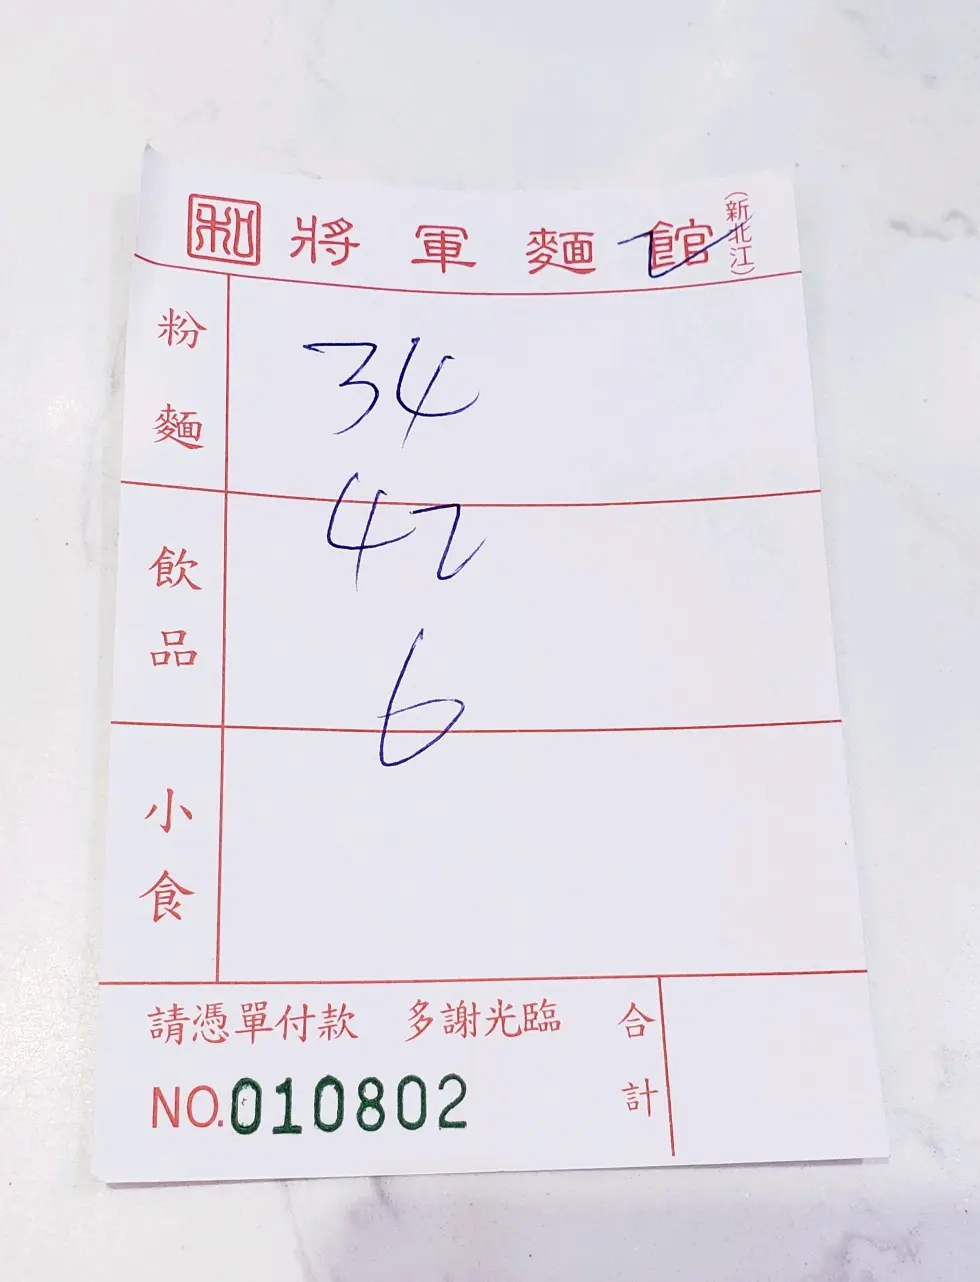 和 將軍麵館 (新北江)
粉麵
34
42
飲品
6
小食
請憑單付款 多謝光臨 合計
NO.010802